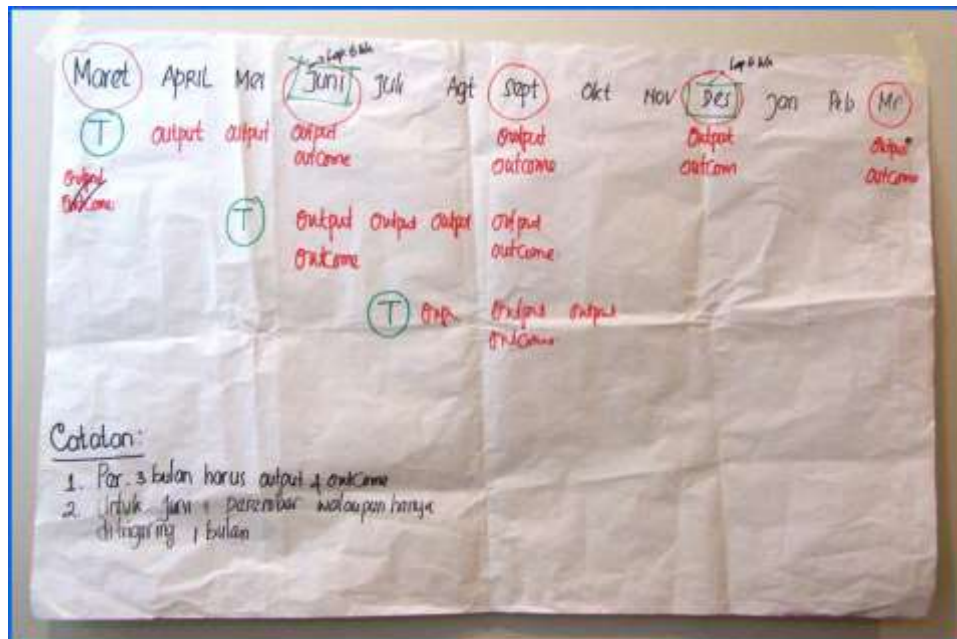 Maret APRIL Mei Juni Juli Agt Sept Okt Nov Des Jan Peb Mr
T output output output output output output
outcome outcome outcom outcome
output
outcome
T output output output output
outcome outcome
T output output
outcome
Catatan:
1. Per 3 bulan harus output & outcome
2. Untuk Juni & Desember walaupun hanya
1 bulan